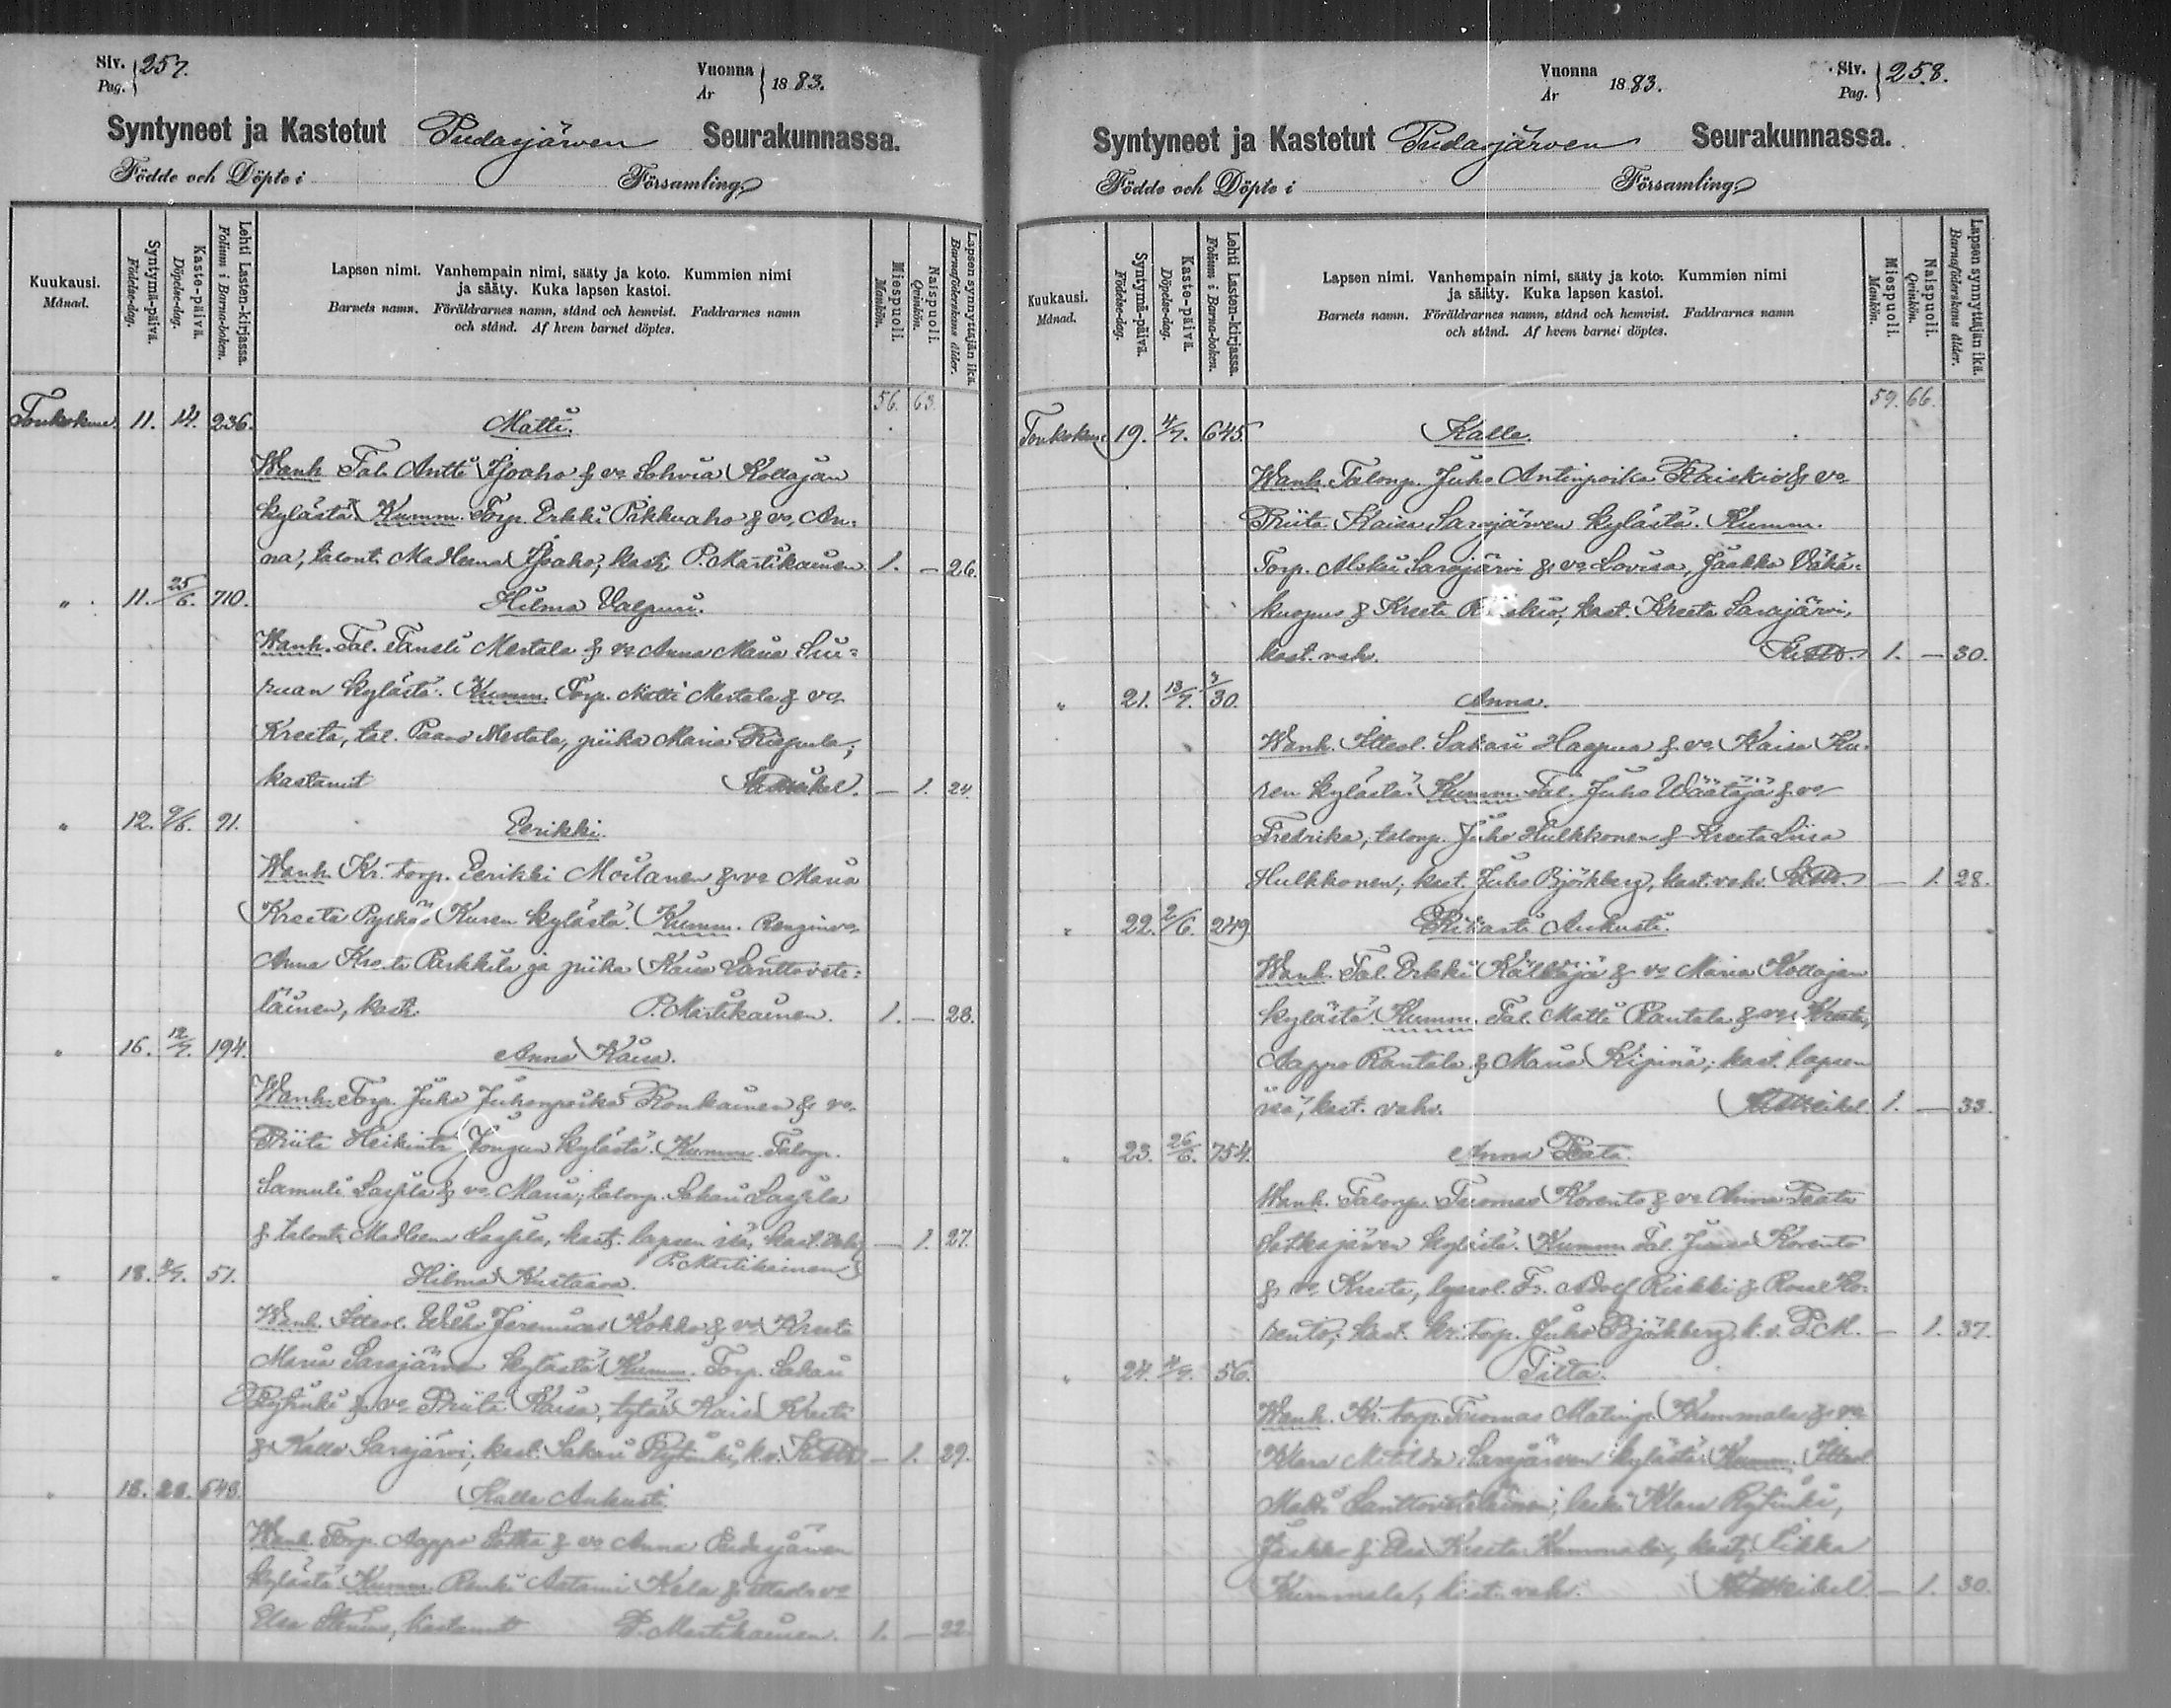 Siv. 257.
Pag.
Vuonna 1883.
År
Syntyneet ja Kastetut Pudasjärven Seurakunnassa.
Födde och Döpte i Församling
Kuukausi.
Månad.
Syntymä-päivä.
Födelse-dag.
Kaste-päivä.
Döpelse-dag.
Lehti Lasten-kirjassa.
Folium i Barna-boken.
Lapsen nimi. Vanhempain nimi, sääty ja koto. Kummien nimi
ja sääty. Kuka lapsen kastoi.
Barnets namn. Föräldrarnes namn, stånd och hemvist. Faddrarnes namn
och stånd. Af hvem barnet döptes.
Miespuoli.
Mankön.
Naispuoli.
Qvinkön.
Lapsen synnyttäjän ikä.
Barnaföderskans ålder.
56. 63.
Toukokuu 11. 14. 236. Matti.
Wanh. Tal. Antti Ijoaho & vo Sohvia Kollajan
kylästä. Kumm. Torp. Erkki Pikkuaho & vo, An-
na, talont. Madleena Ijoaho; kast. P. Martikainen 1. — 26.
" 11. 25/6. 710. Hilma Valpuri.
Wanh. Tal. Fransli Mertala & vo Anna Maria Siu-
ruan kylästä. Kumm. Torp. Matti Mertala & vo
Kreeta, tal. Paavo Mertala, piika Maria Riepula;
kastanut — 1. 24.
" 12. 9/6. 91. Eerikki.
Wanh. Kr. torp. Eerikki Moilanen & vo Maria
Kreeta Pyykäs Kuren kylästä. Kumm. Renginvo
Anna Kreeta Parkkila ja piika Kaisa Santtovete-
läinen, kast. P. Martikainen. 1. — 28.
" 16. 12/7. 194. Anna Kaisa.
Wanh. Torp. Juho Juhonpoika Ronkainen & vo
Priita Heikint. Jongun kylästä. Kumm. Talonp.
Samuli Laspla & vo Maria; talonp. Sakari Laspla
& talont. Madleena Laspla, kast. lapsen isä, kast. vahv. — 1. 27.
P. Martikainen
" 18. 51. Hilma Kustaava.
Wanh. Itteol. Wilho Jeremias Kokko & vo Kreeta
Maria Sarajärven kylästä. Kumm. Torp. Sakari
Rytinki & vo Priita Kaisa, tytär Kaisa Kreeta
& Kalle Sarajärvi; kast. Sakari Rytinki, k.v. — 1. 29.
" 18. 28. 648. Kalle Aukusti.
Wanh. Torp. Aappo Sotka & vo Anna Pudasjärven
kylästä. Kumm. Renki Aatami Kela & itteols vo
Elsa, kastanut P. Martikainen. 1. — 22.
Vuonna 1883.
År
Siv. 258.
Pag.
Syntyneet ja Kastetut Pudasjärven Seurakunnassa.
Födde och Döpte i Församling
Kuukausi.
Månad.
Syntymä-päivä.
Födelse-dag.
Kaste-päivä.
Döpelse-dag.
Lehti Lasten-kirjassa.
Folium i Barna-boken.
Lapsen nimi. Vanhempain nimi, sääty ja koto. Kummien nimi
ja sääty. Kuka lapsen kastoi.
Barnets namn. Föräldrarnes namn, stånd och hemvist. Faddrarnes namn
och stånd. Af hvem barnet döptes.
Miespuoli.
Mankön.
Naispuoli.
Qvinkön.
Lapsen synnyttäjän ikä.
Barnaföderskans ålder.
59. 66.
Toukokuu 19. 4/7. 645. Kalle.
Wanh. Talonp. Juho Antinpoika Raiskio & vo
Priita Kaisa Sarajärven kylästä. Kumm.
Torp. Sarajärvi & vo Lovisa, Jaakko Vähä-
kuopus & Kreeta Raiskio; kast. Kreeta Sarajärvi,
kast. vahv. 1. — 30.
" 21. 13/7. 3/30. Anna.
Wanh. Itteol. Sakari Haapua & vo Kaisa Ku-
ren kylästä. Kumm. Tal. Juho Wäätäjä & vo
Fredrika, talonp. Juho Hulkkonen & Kreeta Liisa
Hulkkonen; kast. Juho Björkberg, kast. vahv. — 1. 28.
" 22. 2/6. 249. Rikasti Aukusti.
Wanh. Tal. Erkki Kälkäjä & vo Maria Kollajan
kylästä. Kumm. Tal. Matti Rantala & vo Kreeta,
Aappo Rantala & Maria Kipinä; kast. lapsen
isä, kast. vahv. 1. — 33.
" 23. 26/6. 754. Anna Peata.
Wanh. Talonp. Tuomas Korento & vo Anna Peata
Sotkajärven kylästä. Kumm. Tal. Korento
& vo Kreeta, Fr. Adolf Riekki & Ko-
rento; kast. kr. torp. Juho Björkberg, k. v. P. M. — 1. 37.
" 24. 4/7. 56. Tilta.
Wanh. Kr. torp. Tuomas Matinp. Kummala & vo
Klara Matilda Sarajärven kylästä. Kumm. Itteol.
Matti Santtoveteläinen, leski Klara Rytinki,
Jaakko & Elsa Kreeta Kummala, kast. Sikka
Kummala, kast. vahv. — 1. 30.